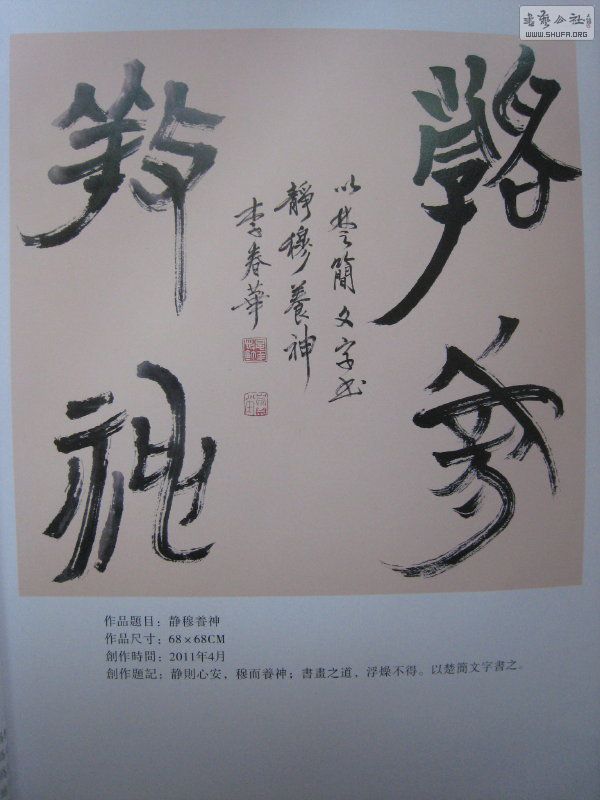 書藝公社
WWW.SHUFA.ORG
靜穆
養神
以楚簡文字書
靜穆養神
李春華
作品題目：静穆養神
作品尺寸：68×68CM
創作時間：2011年4月
創作題記：静則心安，穆而養神；書畫之道，浮燥不得。以楚簡文字書之。